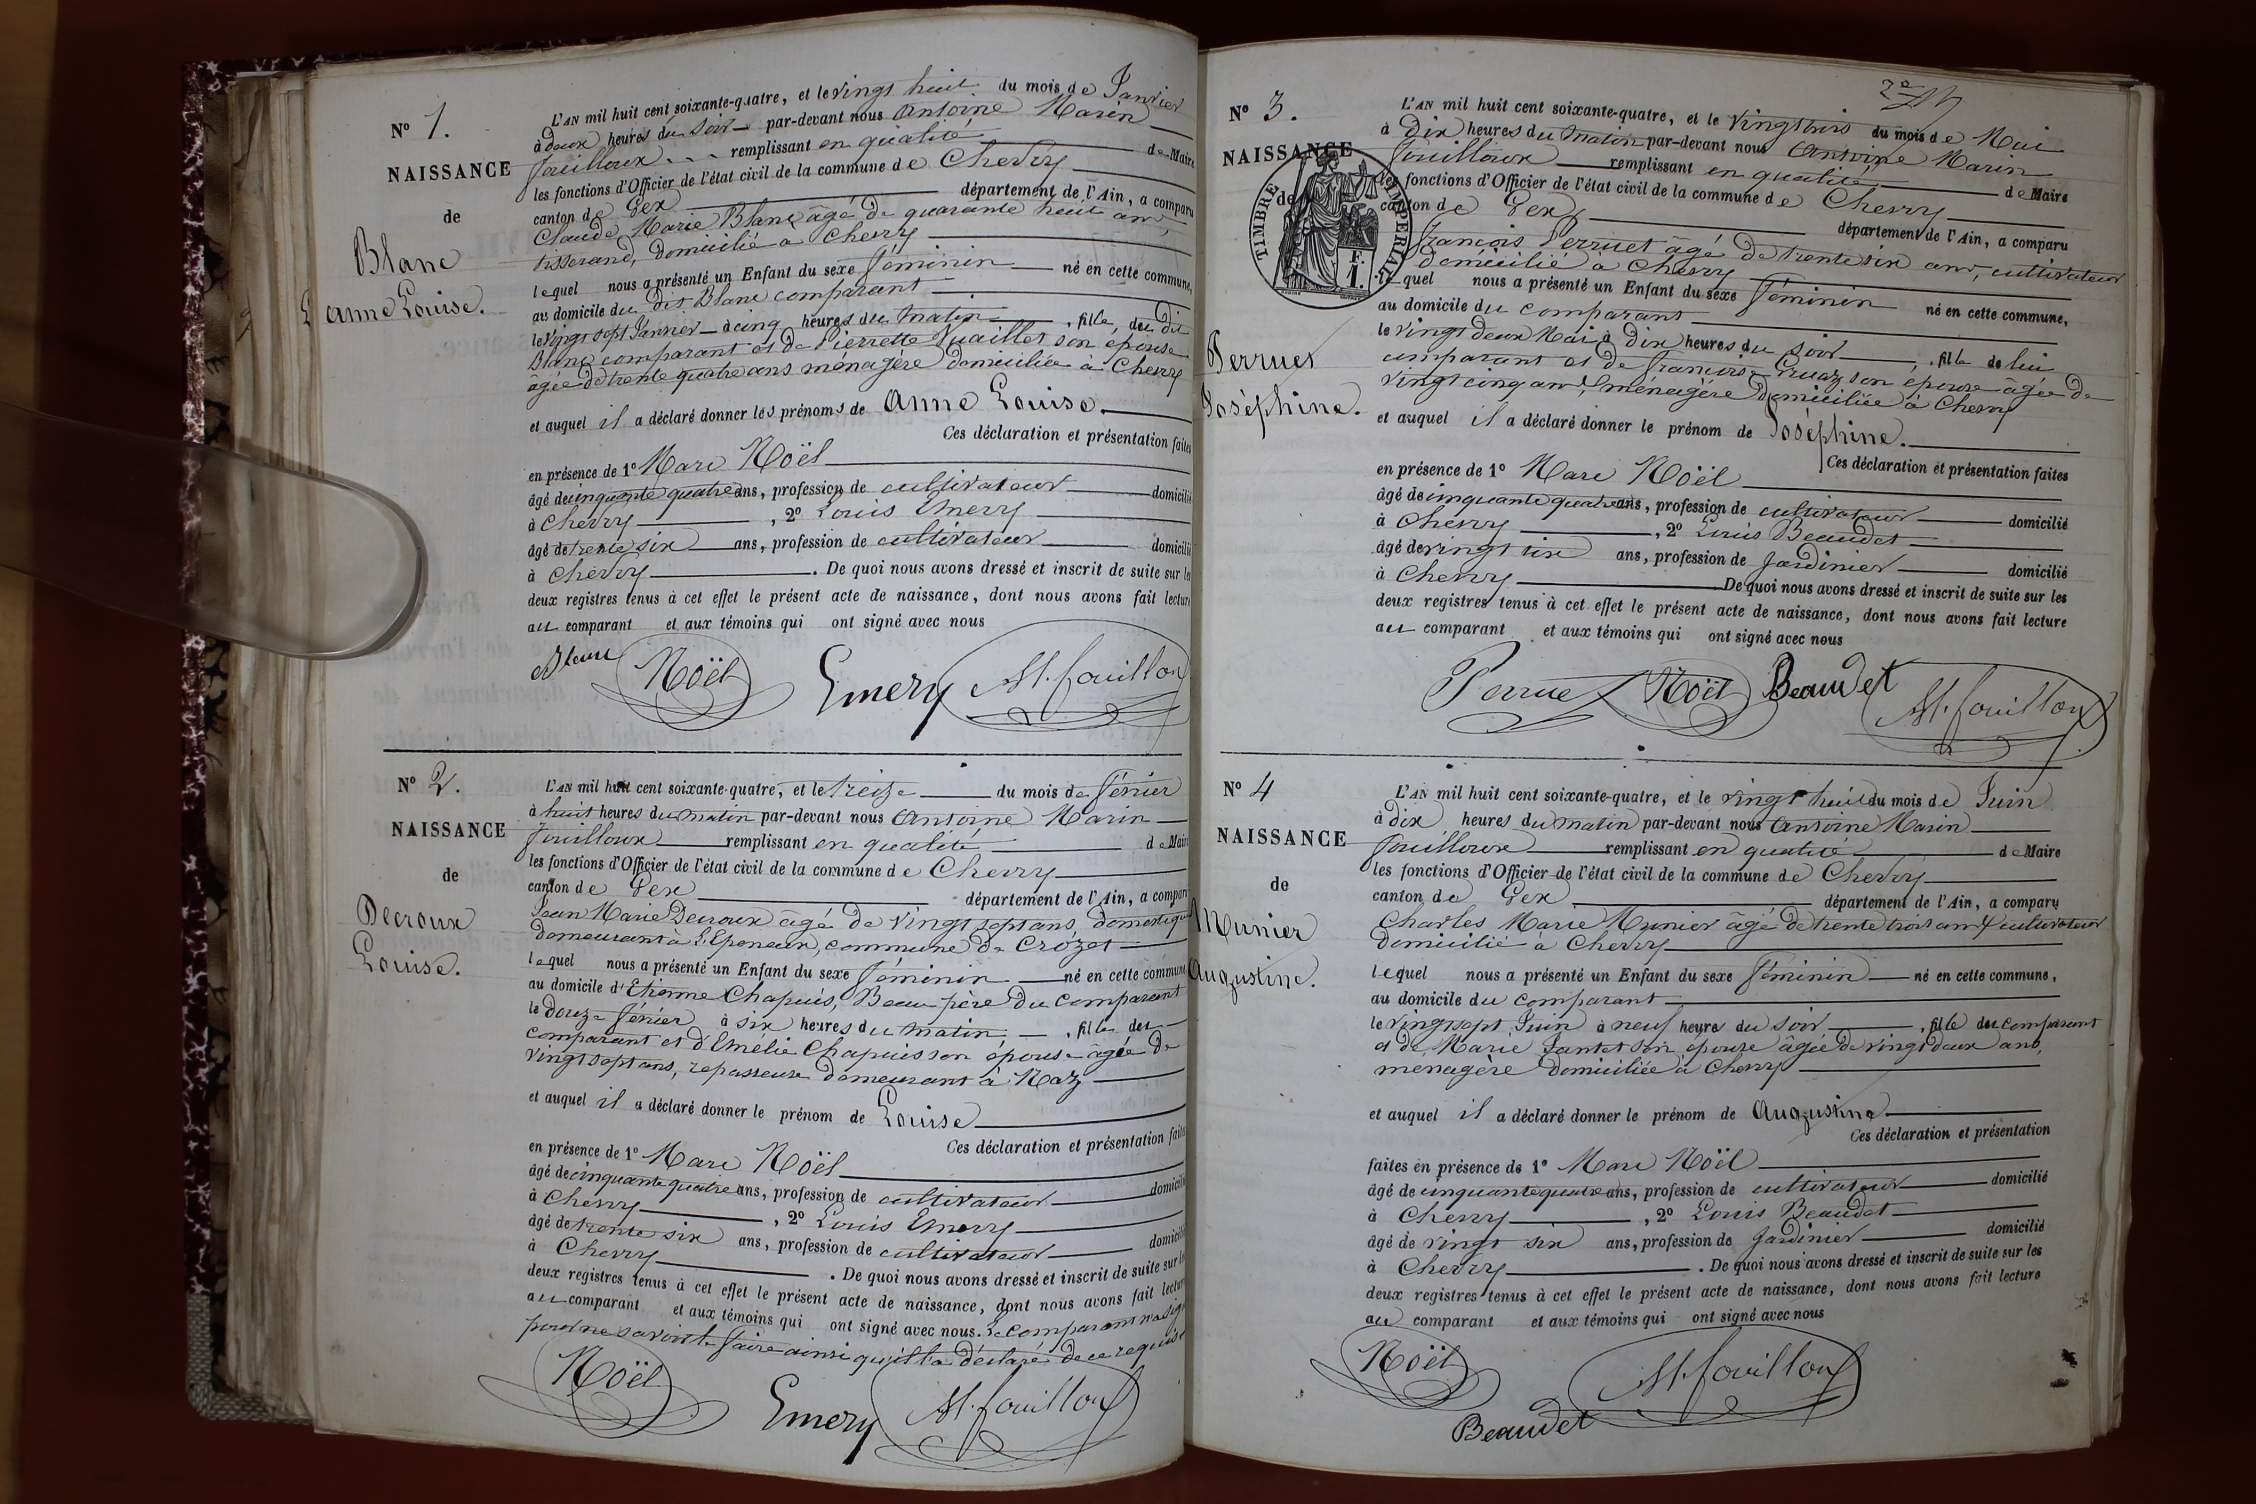 N° 1.
NAISSANCE
de
Blanc
Anne Louise.
L'AN mil huit cent soixante-quatre, et le vingt huit du mois de Janvier
à deux heures du soir par-devant nous Antoine Marin
Fouilloux remplissant en qualité de Maire
les fonctions d'Officier de l'état civil de la commune de Chevry
canton de Gex département de l'Ain, a comparu
Claude Marie Blanc âgé de quarante huit ans,
tisserand, domicilié à Chevry
lequel nous a présenté un Enfant du sexe féminin né en cette commune,
au domicile du dit Blanc comparant
le vingt sept Janvier à cinq heures du matin, fille du dit
Blanc comparant et de Pierrette Vuaillet son épouse
âgée de trente quatre ans ménagère domiciliée à Chevry
et auquel il a déclaré donner les prénoms de Anne Louise.
Ces déclaration et présentation faites
en présence de 1° Marc Noël
âgé de cinquante quatre ans, profession de cultivateur domicilié
à Chevry, 2° Louis Emery
âgé de trente six ans, profession de cultivateur domicilié
à Chevry. De quoi nous avons dressé et inscrit de suite sur les
deux registres tenus à cet effet le présent acte de naissance, dont nous avons fait lecture
au comparant et aux témoins qui ont signé avec nous
Blanc Noël Emery M. fouilloux
N° 2.
NAISSANCE
de
Decroux
Louise.
L'AN mil huit cent soixante-quatre, et le treize du mois de février
à huit heures du matin par-devant nous Antoine Marin
Fouilloux remplissant en qualité de Maire
les fonctions d'Officier de l'état civil de la commune de Chevry
canton de Gex département de l'Ain, a comparu
Jean Marie Decroux âgé de vingt sept ans, domestique
demeurant à L'Eponeux, commune de Crozet
lequel nous a présenté un Enfant du sexe féminin né en cette commune
au domicile d'Etienne Chapuis, Beau père du comparant
le douze février à six heures du matin, fille du
comparant et d'Emélie Chapuis son épouse âgée de
vingt sept ans, repasseuse demeurant à Naz
et auquel il a déclaré donner le prénom de Louise
Ces déclaration et présentation faites
en présence de 1° Marc Noël
âgé de cinquante quatre ans, profession de cultivateur domicilié
à Chevry, 2° Louis Emery
âgé de trente six ans, profession de cultivateur domicilié
à Chevry. De quoi nous avons dressé et inscrit de suite sur les
deux registres tenus à cet effet le présent acte de naissance, dont nous avons fait lecture
au comparant et aux témoins qui ont signé avec nous. Le comparant n'a signé
pour ne savoir le faire ainsi qu'il l'a déclaré de ce requis
Noël Emery M. fouilloux
N° 3.
NAISSANCE
de
TIMBRE IMPERIAL
1 F.
Perruet
Joséphine.
L'AN mil huit cent soixante-quatre, et le vingt trois du mois de Mai
à dix heures du matin par-devant nous Antoine Marin
Fouilloux remplissant en qualité de Maire
les fonctions d'Officier de l'état civil de la commune de Chevry
canton de Gex département de l'Ain, a comparu
François Perruet âgé de trente six ans, cultivateur
domicilié à Chevry
lequel nous a présenté un Enfant du sexe féminin né en cette commune,
au domicile du comparant
le vingt deux Mai à dix heures du soir, fille de lui
comparant et de Françoise Gruaz son épouse âgée de
vingt cinq ans, ménagère domiciliée à Chevry
et auquel il a déclaré donner le prénom de Joséphine.
Ces déclaration et présentation faites
en présence de 1° Marc Noël
âgé de cinquante quatre ans, profession de cultivateur domicilié
à Chevry, 2° Louis Beaudet
âgé de vingt six ans, profession de Jardinier domicilié
à Chevry De quoi nous avons dressé et inscrit de suite sur les
deux registres tenus à cet effet le présent acte de naissance, dont nous avons fait lecture
au comparant et aux témoins qui ont signé avec nous
Perruet Noël Beaudet M. fouilloux
N° 4
NAISSANCE
de
Munier
Augustine.
L'AN mil huit cent soixante-quatre, et le vingt huit du mois de Juin
à dix heures du matin par-devant nous Antoine Marin
Fouilloux remplissant en qualité de Maire
les fonctions d'Officier de l'état civil de la commune de Chevry
canton de Gex département de l'Ain, a comparu
Charles Marie Munier âgé de trente trois ans cultivateur
domicilié à Chevry
lequel nous a présenté un Enfant du sexe féminin né en cette commune,
au domicile du comparant
le vingt sept Juin à neuf heures du soir, fille du comparant
et de Marie Santet son épouse âgée de vingt deux ans,
ménagère domiciliée à Chevry
et auquel il a déclaré donner le prénom de Augustine
Ces déclaration et présentation
faites en présence de 1° Marc Noël
âgé de cinquante quatre ans, profession de cultivateur domicilié
à Chevry, 2° Louis Beaudet
âgé de vingt six ans, profession de Jardinier domicilié
à Chevry. De quoi nous avons dressé et inscrit de suite sur les
deux registres tenus à cet effet le présent acte de naissance, dont nous avons fait lecture
au comparant et aux témoins qui ont signé avec nous
Noël M. fouilloux
Beaudet